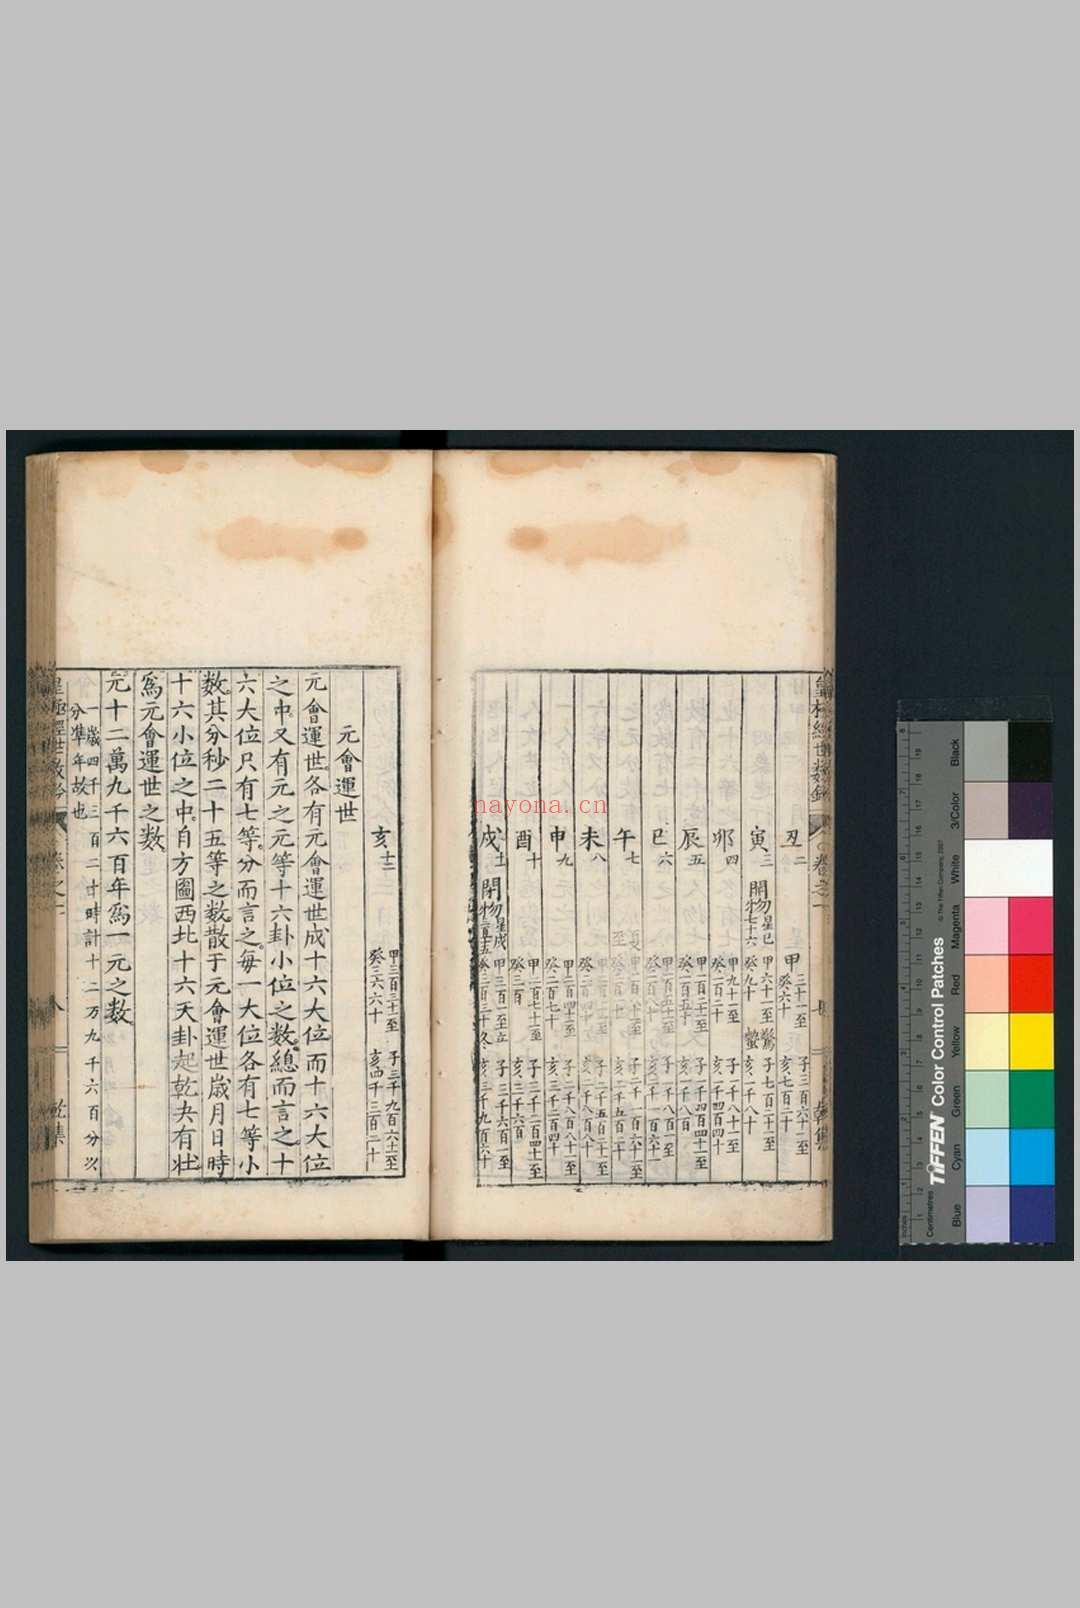 丑二 甲三十一至癸六十 子三百六十一至亥七百二十
寅三 開物星己七十六 甲六十一至癸九十 驚蟄 子七百二十一至亥一千八十
卯四 甲九十一至癸一百二十 子一千八十一至亥一千四百四十
辰五 甲一百二十一至癸一百五十 子一千四百四十一至亥一千八百
巳六 子一千八百一至
午七 夏至
未八
申九 甲二百四十一至癸二百七十 子二千八百八十一至亥三千二百四十
酉十 甲二百七十一至癸三百 子三千二百四十一至亥三千六百
戌十一 閉物星戌三百一十五 甲三百一至癸三百三十 立冬 子三千六百一至亥三千九百六十
亥十二 甲三百三十一至癸三百六十 子三千九百六十一至亥四千三百二十
元會運世
元會運世各有元會運世成十六大位而十六大位
之中又有元之元等十六卦小位之數總而言之十
六大位只有七等分而言之每一大位各有七等小
數其分秒二十五等之數散于元會運世歲月日時
十六小位之中自方圖西北十六天卦起乾夬有壯
爲元會運世之數
元十二萬九千六百年爲一元之數
一歲四千三百二十時計十二万九千六百分以
分準年故也
皇極經世數鈐 卷之一 乾集
nayona.cn
TIFFEN Color Control Patches
© The Tiffen Company, 2007
Inches
Centimetres
Blue
Cyan
Green
Yellow
Red
Magenta
White
3/Color
Black